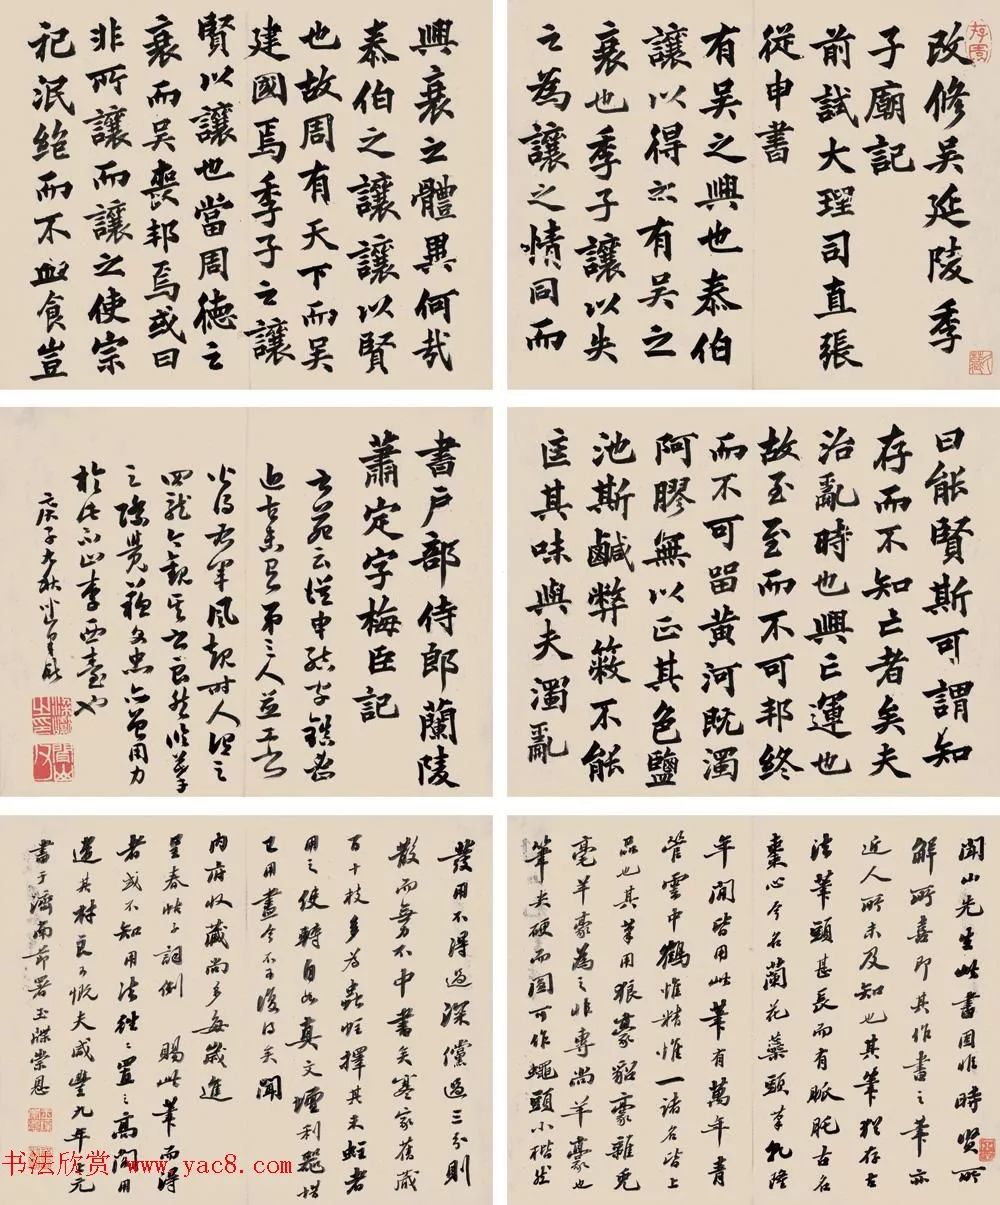 改修吴延陵季
子廟記
前試大理司直張
從申書
有吴之興也泰伯
讓以得之有吴之
衰也季子讓以失
之為讓之情同而
興衰之體異何哉
泰伯之讓讓以賢
也故周有天下而吴
建國焉季子之讓
賢以讓也當周德之
衰而吴喪邦焉或曰
非所讓而讓之使宗
祀泯絶而不血食豈
曰能賢斯可謂知
存而不知亡者矣夫
治亂時也興亡運也
故至至而不可邦終
而不可畱黄河既濁
阿膠無以正其色鹽
池斯鹹弊簌不能
匡其味與夫濁亂
書户部侍郎蘭陵
蕭定字梅臣記
書苑云從申
近古未有弟三人並工書
必得右軍風規時人謂之
四龍今觀其書良然
之際覺蘇文忠亦曾用力
於此不止李西臺也
庚子大秋
聞山先生此書固非時賢所
解所喜即其作書之筆亦
近人所未及知也其筆猶存古
法筆頭甚長而有脈胝古名
棗心今名蘭花蘂頭筆乾隆
年間皆用此筆有萬年青
管雲中鶴惟精惟一諸名皆上
品也其筆用狼豪貂豪雜兎
毫羊豪為之非專尚羊豪也
筆尖硬而圓可作蠅頭小楷然
發用不得過深儻過三分則
散而無不中書矣寒家舊藏
百十枝多為蟲蛀擇其未蛀者
用之使轉自如真文壇利器惜
已用盡今不可復得矣聞
内府收藏尚多每歲進
呈春帖子詞例 賜此筆而得
者或不知用法往往置之高閣用
違其材良可慨夫咸豐九年上元
書于濟南節署玉牒崇恩
书法欣赏 www.yac8.com